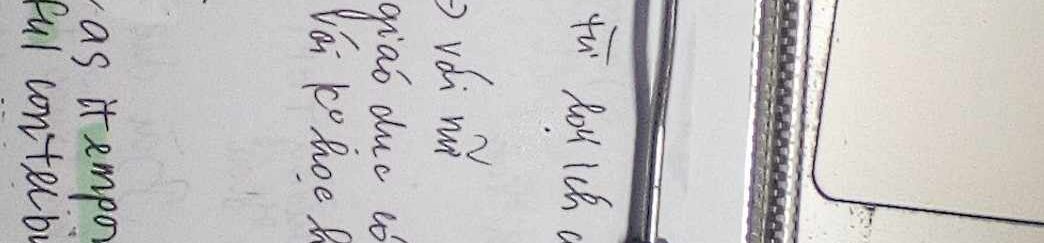 từ lợi ích
→ với nữ
giáo dục có
Với ko học h
as it empo
ful contribu